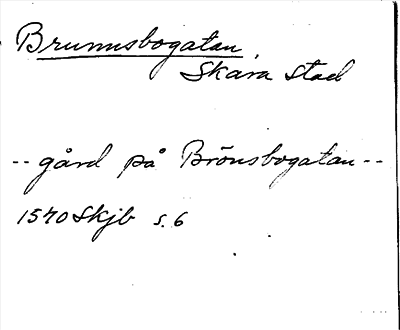 Brunnsbogatan,
Skara stad
-- gård på Brönsbogatan --
1570 Skjb s. 6